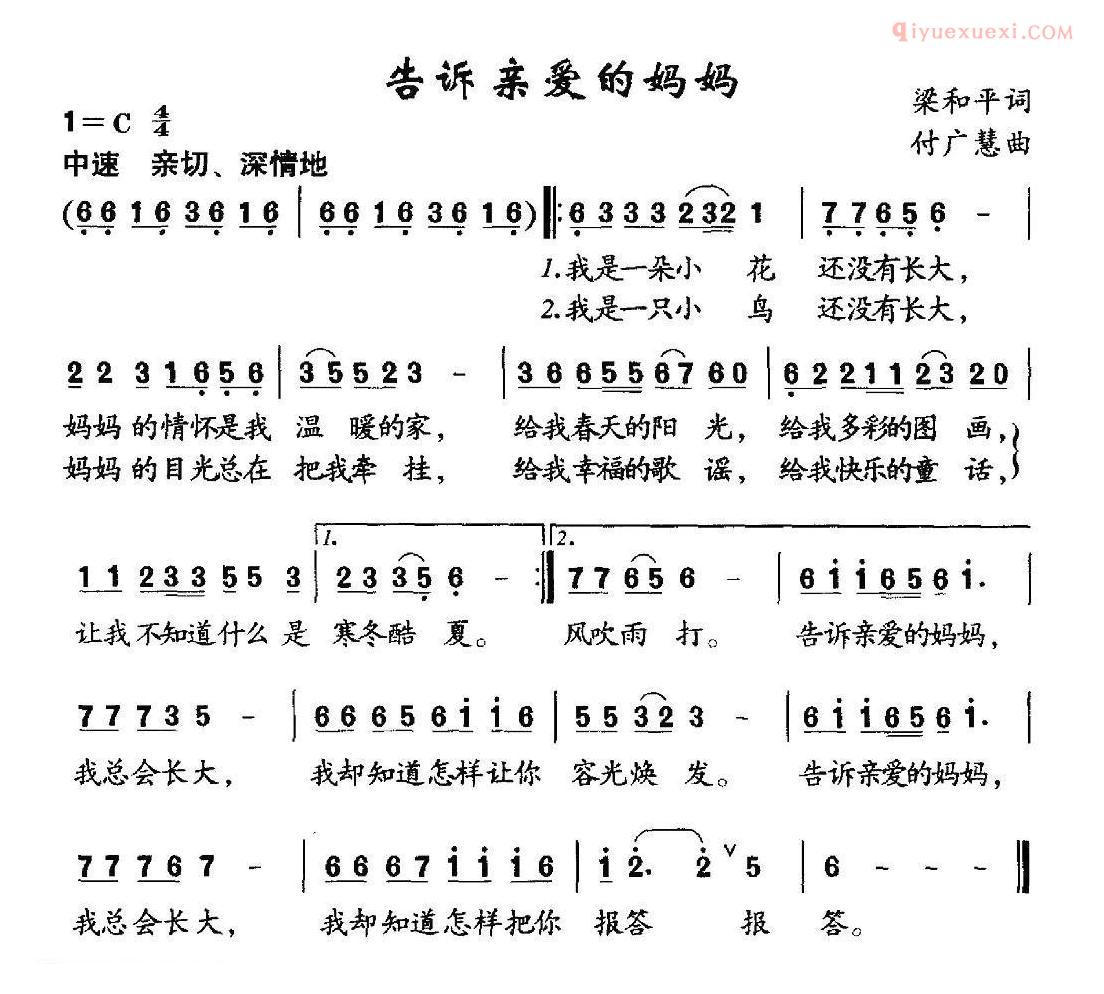 qiyuexuexi.COM
告诉亲爱的妈妈
梁和平词
1=C 4/4
付广慧曲
中速 亲切、深情地
(6̣ 6̣ 1 6̣ 3 6̣ 1 6̣ | 6̣ 6̣ 1 6̣ 3 6̣ 1 6̣) ‖: 6̣ 3 3 3 2 3 2 1 | 7̣ 7̣ 6̣ 5̣ 6̣ - |
1.我是一朵小 花 还没有长大,
2.我是一只小 鸟 还没有长大,
2 2 3 1 6̣ 5̣ 6̣ | 3 5 5 2 3 - | 3 6 6 5 5 6 7 6 0 | 6̣ 2 2 1 1 2 3 2 0 |
妈妈 的情怀是我 温 暖的家, 给我春天的阳 光, 给我多彩的图 画,
妈妈 的目光总在 把我牵 挂, 给我幸福的歌 谣, 给我快乐的童 话,
1. 2.
1 1 2 3 3 5 5 3 | 2 3 3 5̣ 6̣ - :‖ 7 7 6 5 6 - | 6 i i 6 5 6 i. |
让我 不知道什么 是 寒冬酷 夏。 风吹雨 打。 告诉亲爱的妈妈,
7 7 7 3 5 - | 6 6 6 5 6 i i 6 | 5 5 3 2 3 - | 6 i i 6 5 6 i. |
我总会长大, 我却知道怎样让你 容光焕 发。 告诉亲爱的妈妈,
7 7 7 6 7 - | 6 6 6 7 i i i 6 | i 2̇. 2̇ ∨ 5 | 6 - - - ‖
我总会长大, 我却知道怎样把你 报答 报 答。